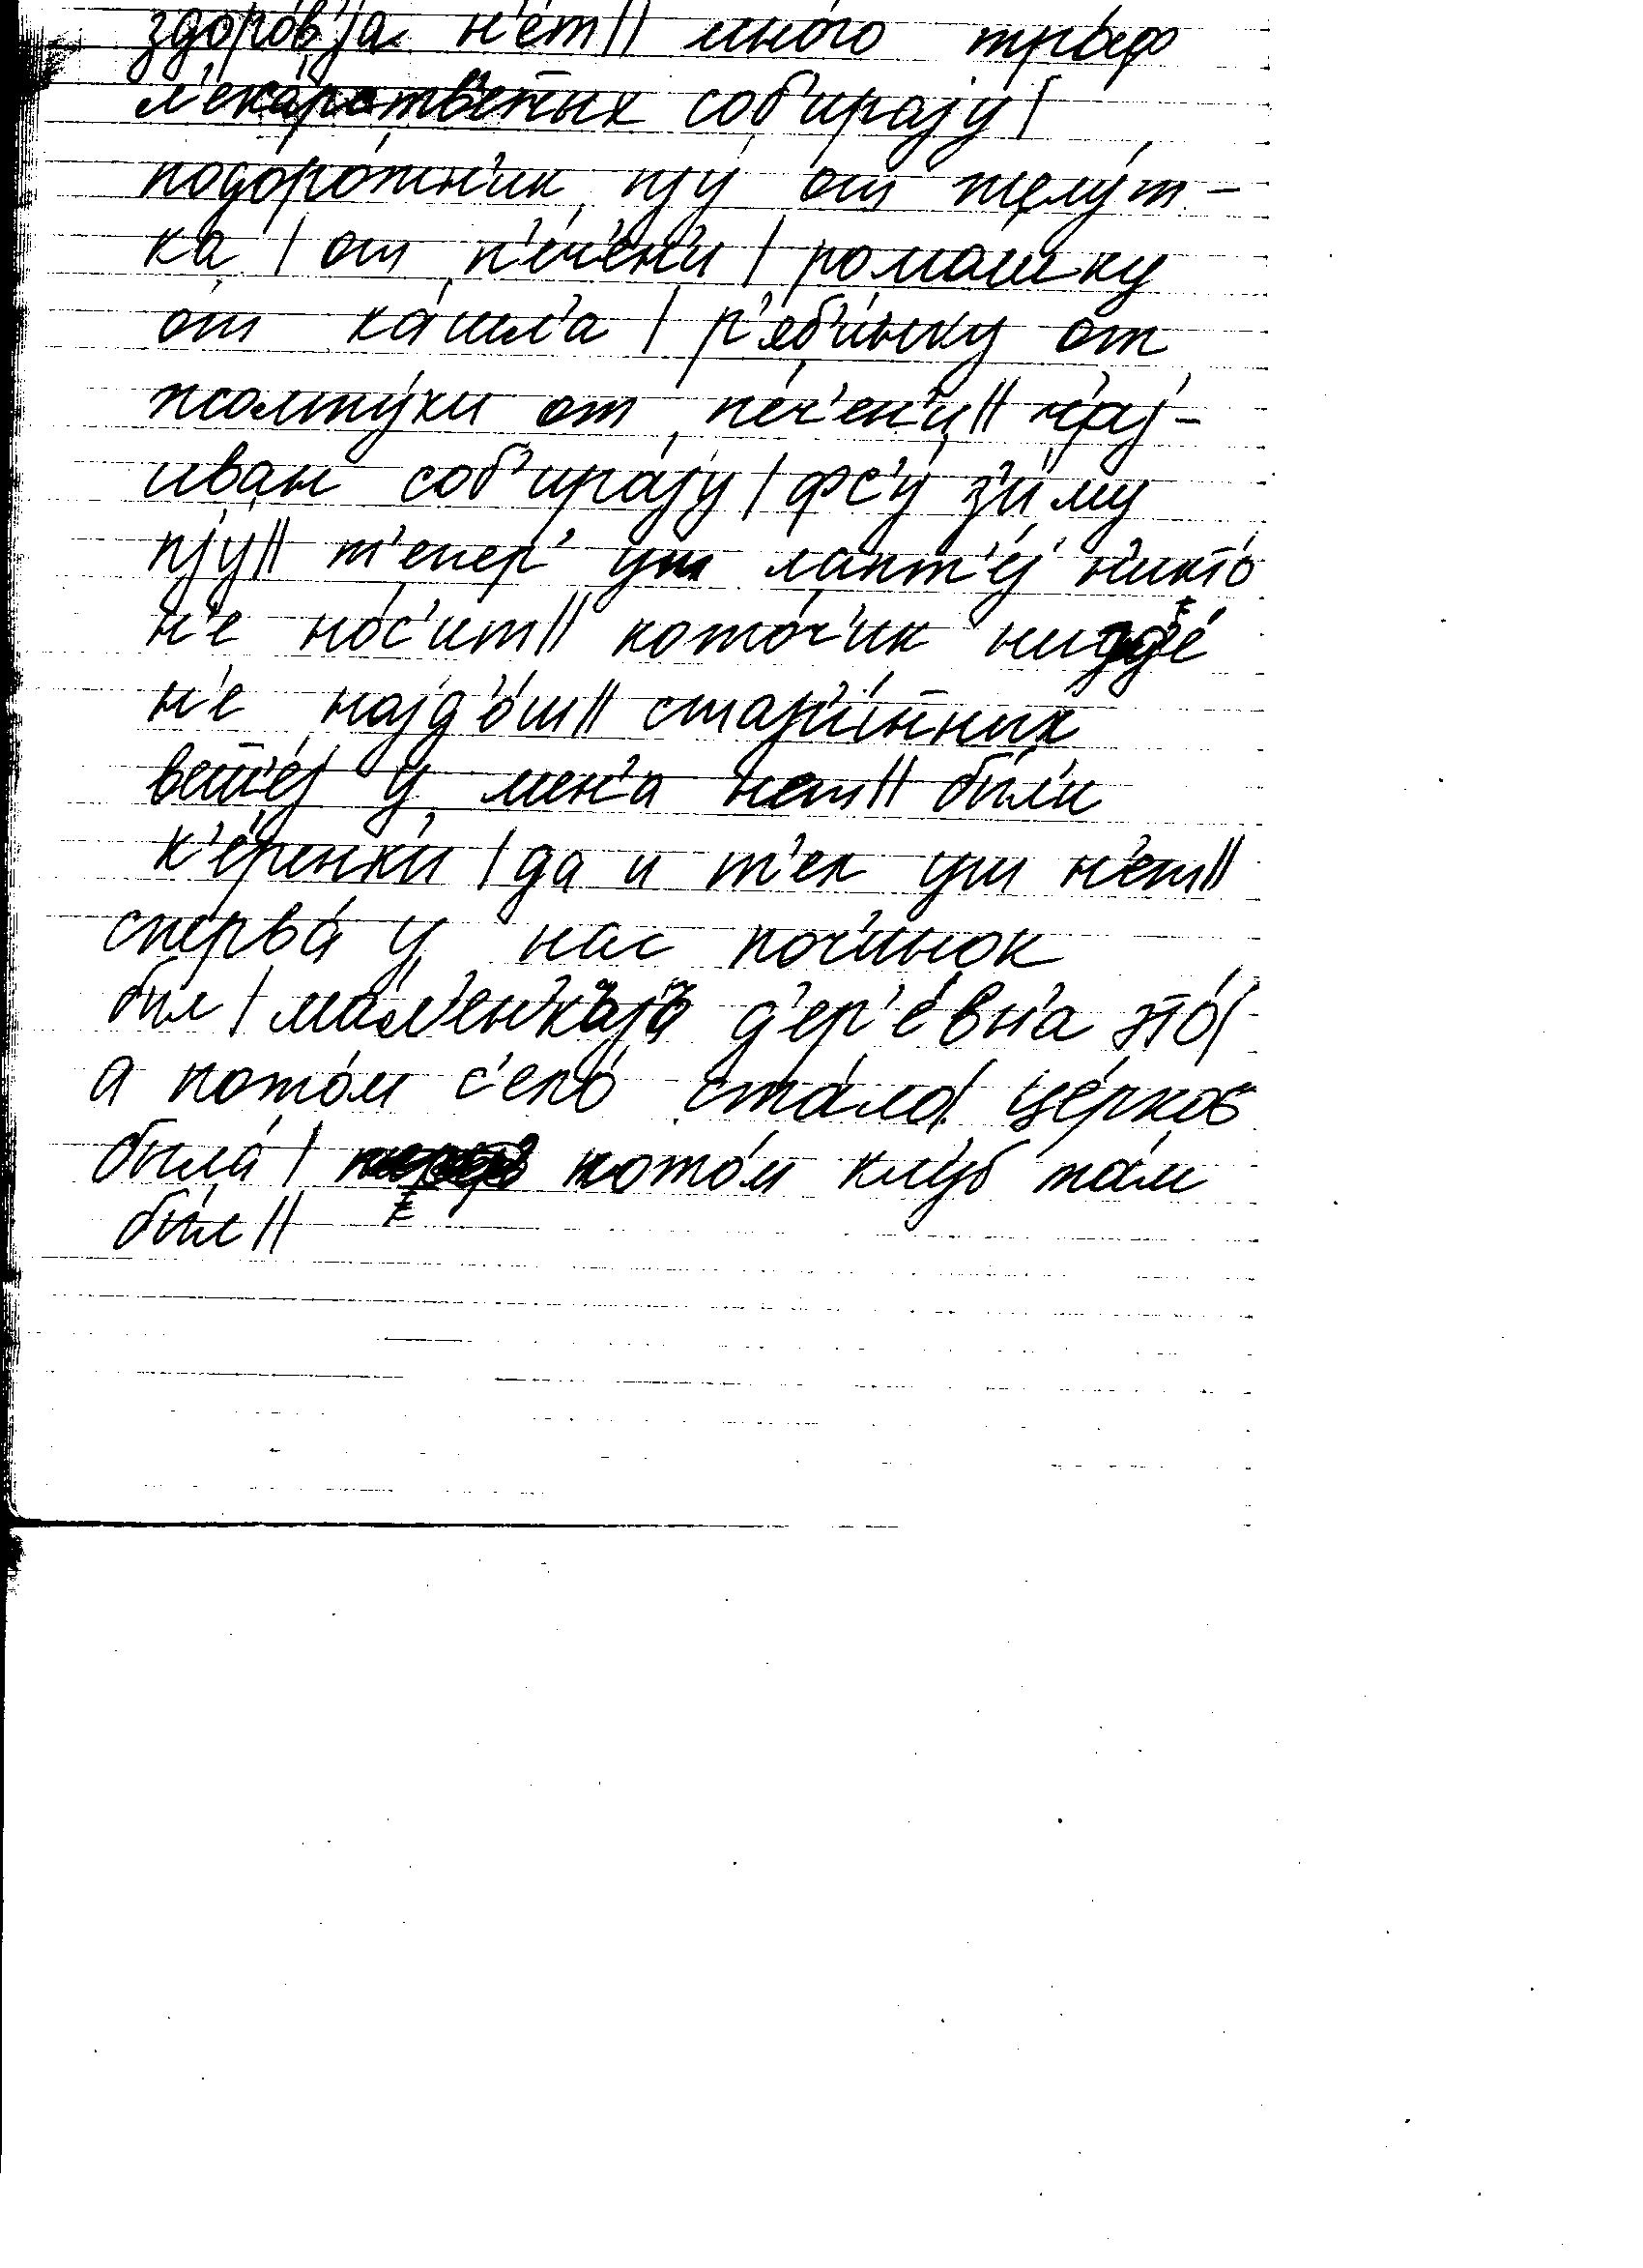 здоро́в'jа н'е́т|| мно́го тръф
л'ека́рств'ен̄ых соб'ира́jу|
подоро́жн'ик пjу о́т жълу́т-
ка | от п'е́ч'ен'и | ромашку
о́т ка́шл'а | р'аб'и́нку от
жолту́хи от п'е́ч'ен'и|| ч'аj-
иван соб'ира́jу | фс'у́ з'и́му
пjу|| т'епер' уш лапт'е́j н'икто́
н'е но́с'ит|| кото́ч'ик нигд'е́
н'е наjд'о́ш|| стар'и́н̄ных
веш̄'е́j у мен'а нет|| бы́л'и
к'е́ренк'и | да и т'ех уш н'ет||
сперва́ у нас поч'инок
был | ма́л'ен'къjъ д'ер'е́вн'а э́то|
а пото́м с'ело́ ста́ло| це́рков
была́ | пото́м клу́б та́м
бы́л ||